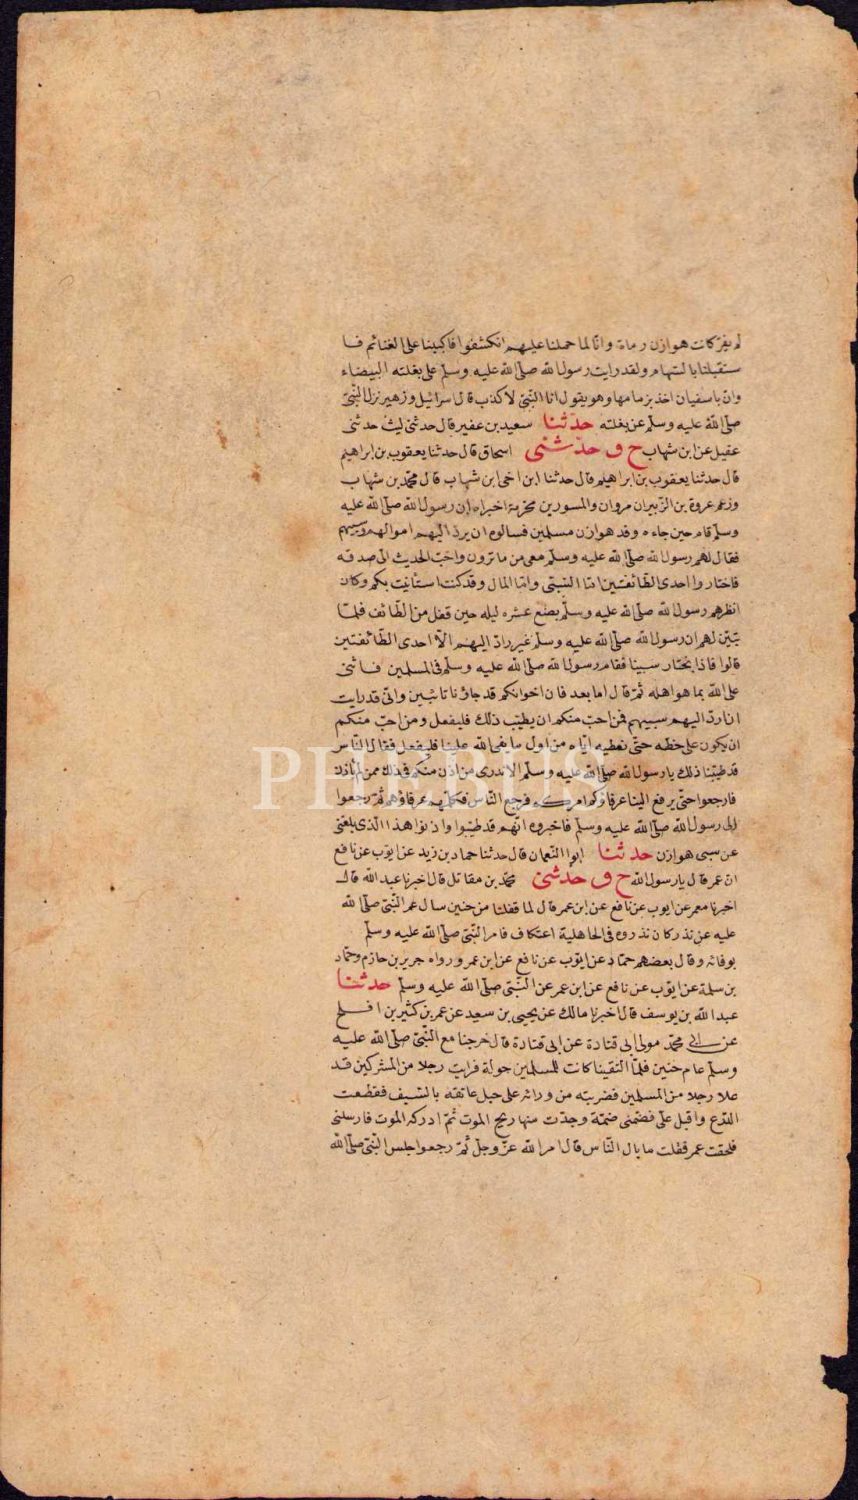 لم يفرّ كانت هوازن رماة وانّا لما حملنا عليهم انكشفوا فاكببنا على الغنائم فا
ستقبلنا بالسّهام ولقد رايت رسول الله صلّى الله عليه وسلّم على بغلته البيضاء
وانّ باسفيان اخذ بزمامها وهو يقول انا النّبيّ لا كذب قال اسرائيل وزهير نزل النّبيّ
صلّى الله عليه وسلم عن بغلته حدّثنا سعيد بن عفير قال حدثنى ليث حدثنى
عقيل عن ابن شهاب ح و حدّثنى اسحاق قال حدثنا يعقوب بن ابراهيم
قال حدثنا يعقوب بن ابراهيم قال حدثنا ابن اخى ابن شهاب قال محمّد بن شهاب
وزعم عروة بن الزّبير ان مروان والمسور بن مخرمة اخبراه ان رسول الله صلّى الله عليه
وسلّم قام حين جاءه وفد هوازن مسلمين فسالوه ان يردّ اليهم اموالهم وسبيهم
فقال لهم رسول الله صلّى الله عليه وسلّم معى من ما ترون واحبّ الحديث الى صدقه
فاختاروا احدى الطّائفتين امّا السّبى وامّا المال وقد كنت استأنيت بكم وكان
انظرهم رسول الله صلّى الله عليه وسلّم بضع عشره ليله حين قفل من الطّائف فلمّا
تبيّن لهم ان رسول الله صلّى الله عليه وسلم غير رادّ اليهم الّا احدى الطّائفتين
قالوا فاذا نختار سبينا فقام رسول الله صلّى الله عليه وسلّم فى المسلمين فاثنى
على الله بما هو اهله ثمّ قال اما بعد فان اخوانكم قد جاؤنا تائبين وانّى قد رايت
ان اردّ اليهم سبيهم فمن احبّ منكم ان يطيّب ذلك فليفعل ومن احبّ منكم
ان يكون على حظه حتّى نعطيه ايّاه من اول ما يفى الله علينا فليفعل فقال النّاس
قد طيّبنا ذلك يا رسول الله صلّى الله عليه وسلّم لا ندرى من اذن منكم فى ذلك ممن لم يأذن
فارجعوا حتّى يرفع الينا عرفاؤكم امركم فرجع النّاس فكلّمهم عرفاؤهم ثمّ رجعوا
الى رسول الله صلّى الله عليه وسلّم فاخبروه انّهم قد طيّبوا واذنوا هذا الّذى بلغنى
عن سبى هوازن حدثنا ابوا النّعمان قال حدثنا حماد بن زيد عن ايّوب عن نافع
ان عمر قال يا رسول الله ح و حدثنى محمّد بن مقاتل قال اخبرنا عبد الله قال
اخبرنا معمر عن ايوب عن نافع عن ابن عمر قال لما قفلنا من حنين سال عمر النّبىّ صلّى الله
عليه عن نذر كان نذروه فى الجاهلية اعتكاف فامر النّبىّ صلّى الله عليه وسلّم
بوفائه وقال بعضهم حمّاد عن ايّوب عن نافع عن ابن عمر ورواه جرير بن حازم وحمّاد
بن سلمة عن ايّوب عن نافع عن ابن عمر عن النّبىّ صلّى الله عليه وسلّم حدثنا
عبد الله بن يوسف قال اخبرنا مالك عن يحيى بن سعيد عن عمر بن كثير بن افلح
عن ابى محمّد مولى ابى قتادة عن ابى قتادة قال خرجنا مع النّبىّ صلّى الله عليه
وسلّم عام حنين فلمّا التقينا كانت للمسلمين جولة فرايت رجلا من المشركين قد
علا رجلا من المسلمين فضربته من ورائه على حبل عاتقه بالسّيف فقطعت
الدّرع واقبل علّى فضمّنى ضمّة وجدت منها ريح الموت ثمّ ادركه الموت فارسلنى
فلحقت عمر فقلت ما بال النّاس قال امر الله عزّ وجلّ ثمّ رجعوا جلس النّبىّ صلّى الله
PHEBUS